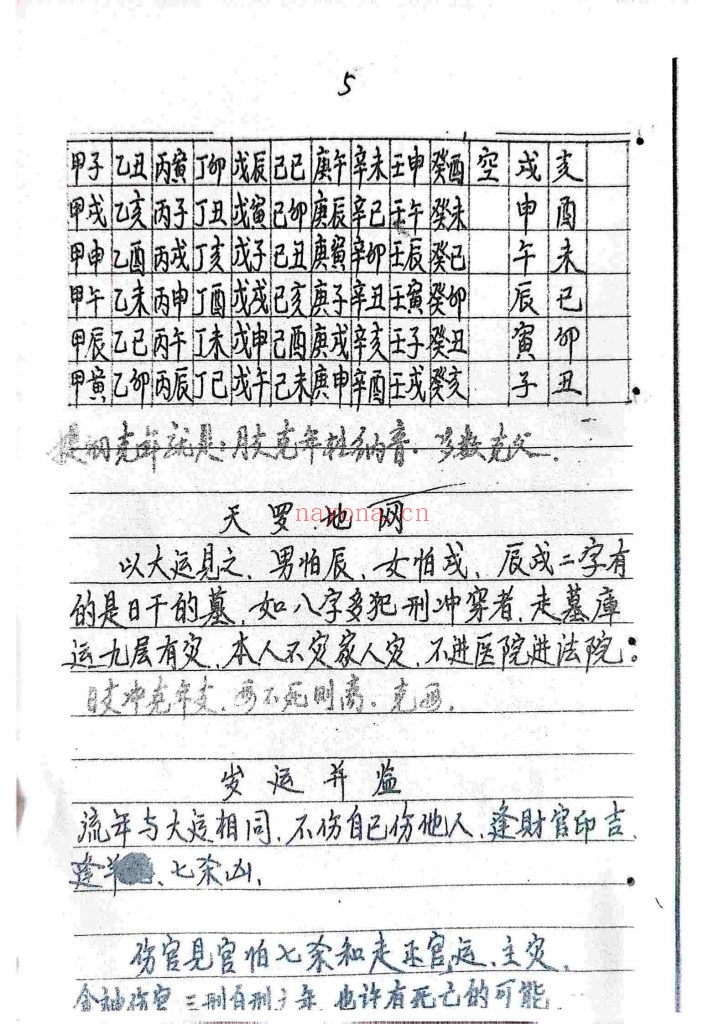 5
甲子 乙丑 丙寅 丁卯 戊辰 己巳 庚午 辛未 壬申 癸酉 空 戌 亥
甲戌 乙亥 丙子 丁丑 戊寅 己卯 庚辰 辛巳 壬午 癸未 申 酉
甲申 乙酉 丙戌 丁亥 戊子 己丑 庚寅 辛卯 壬辰 癸巳 午 未
甲午 乙未 丙申 丁酉 戊戌 己亥 庚子 辛丑 壬寅 癸卯 辰 巳
甲辰 乙巳 丙午 丁未 戊申 己酉 庚戌 辛亥 壬子 癸丑 寅 卯
甲寅 乙卯 丙辰 丁巳 戊午 己未 庚申 辛酉 壬戌 癸亥 子 丑
提纲克年就是:月支克年柱纳音.多数克父.
天罗地网
nayona.cn
以大运見之、男怕辰、女怕戌、辰戌二字有
的是日干的墓、如八字多犯刑冲穿者、走墓庫
运九层有灾、本人不灾家人灾、不进医院进法院。
日支冲克年支、不死则离。克
岁运并临
流年与大运相同、不伤自己伤他人、逢財官印吉、
逢羊、七杀凶、
伤官見官怕七杀和走正官运、主灾、
三刑自刑年、也许有死亡的可能